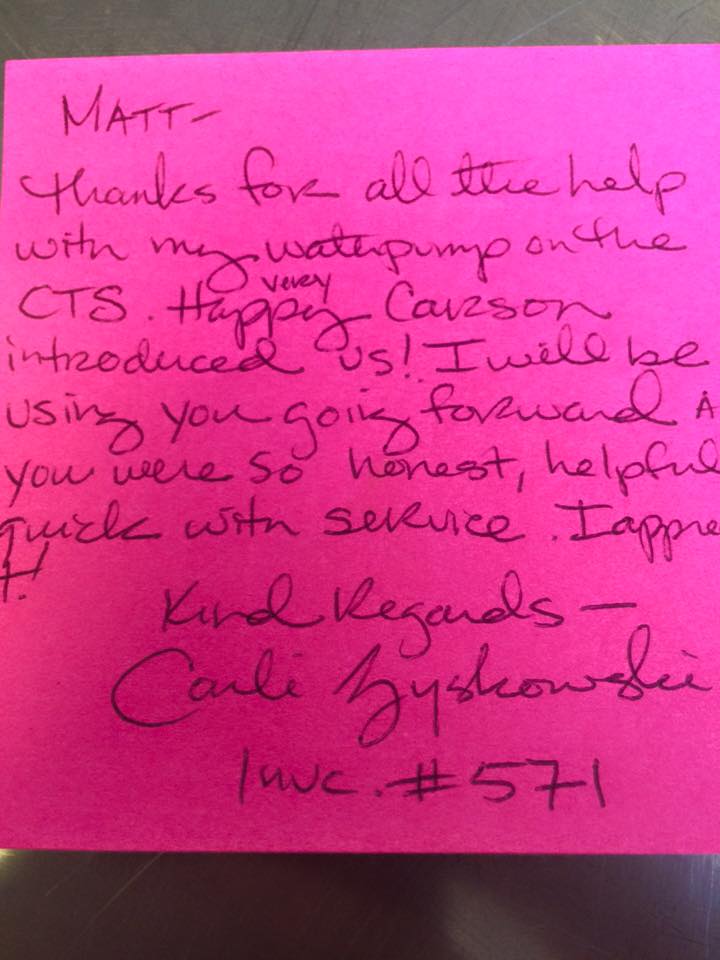 MATT-
thanks for all the help
with my waterpump on the
CTS. Very Happy Carson
introduced us! I will be
using you going forward A
you were so honest, helpful
quick with service. I appre
t!
Kind Regards -
Carli Zyskowski
Invc. #571